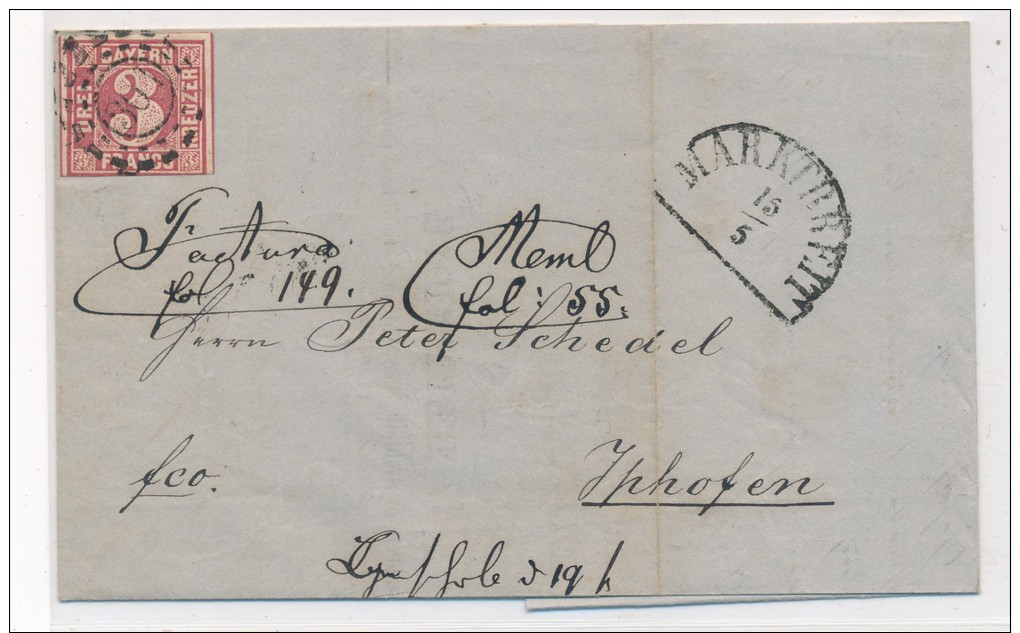 BAYERN
DREI
3
KREUZER
FRANCO
MARKTBREIT
15
5
Factura
fol 149.
Meml
fol: 55.
Herrn Peter Schedel
fco.
Iphofen
d 19